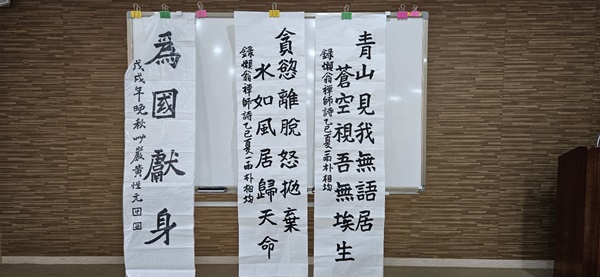 青山見我無語居
蒼空視吾無埃生
錄懶翁禪師詩乙巳夏一雨朴相均
貪慾離脫怒拋棄
水如風居歸天命
錄懶翁禪師詩乙巳夏一雨朴相均
爲國獻身
戊戌年晚秋艸嚴黃性元